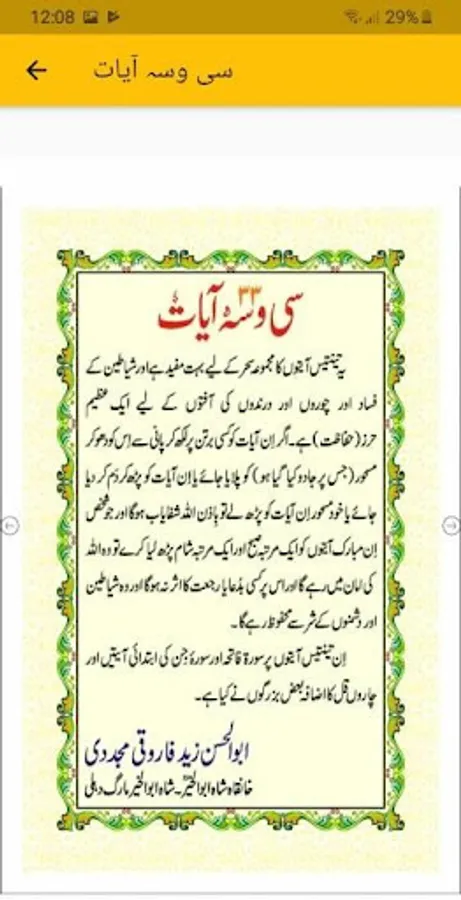 12:08
29%
سی وسہ آیات
سی و سہ آیات ۳۳
یہ تینتیس آیتوں کا مجموعہ سحر کے لیے بہت مفید ہے اور شیاطین کے
فساد اور چوروں اور درندوں کی آفتوں کے لیے ایک عظیم
حرز (حفاظت) ہے۔ اگر اِن آیات کو کسی برتن پر لکھ کر پانی سے اس کو دھو کر
مسحور (جس پر جادو کیا گیا ہو) کو پلایا جائے یا اِن آیات کو پڑھ کر دَم کر دیا
جائے یا خود مسحور اِن آیات کو پڑھ لے تو باذن اللہ شفایاب ہوگا اور جو شخص
اِن مبارک آیتوں کو ایک مرتبہ صبح اور ایک مرتبہ شام پڑھ لیا کرے تو وہ اللہ
کی امان میں رہے گا اور اس پر کسی بددعا یا رجعت کا اثر نہ ہوگا اور وہ شیاطین
اور دشمنوں کے شر سے محفوظ رہے گا۔
اِن تینتیس آیتوں پر سورۂ فاتحہ اور سورۂ جِن کی ابتدائی آیتیں اور
چاروں قُل کا اضافہ بعض بزرگوں نے کیا ہے۔
ابوالحسن زید فاروقی مجددی
خانقاہ شاہ ابوالخیرؒ۔ شاہ ابوالخیر مارگ دہلی